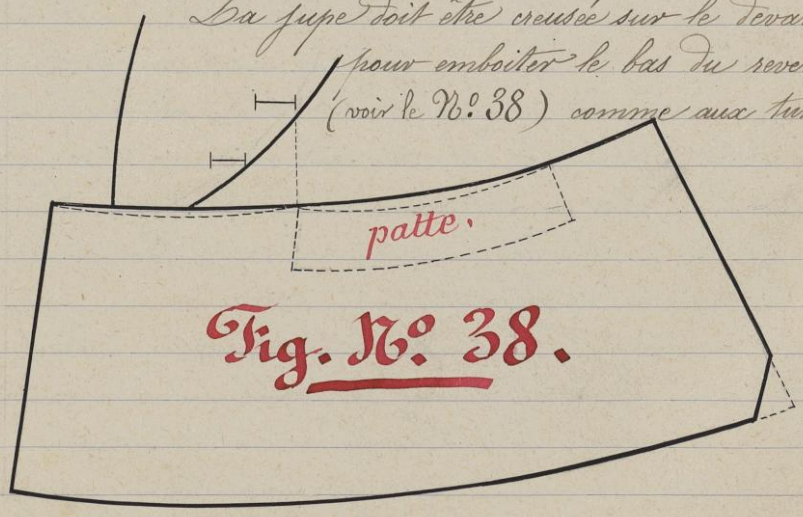 La jupe doit être creusée sur le devan
pour emboiter le bas du reve
(voir le Nº 38) comme aux tu
patte.
Fig. Nº 38.